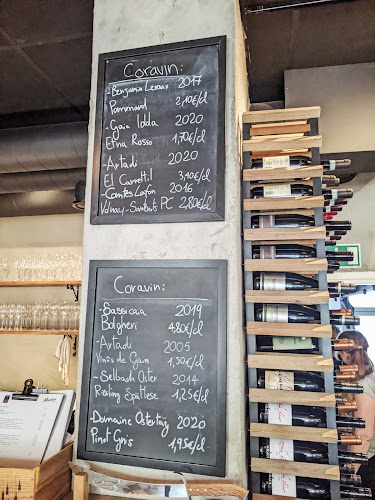 Coravin:
-Benjamin Leroux 2017
Pommard 2,10€/cl
-Gaia Idda 2020
Etna Rosso 1,70€/cl
-Artadi 2020
El Carretil 3,10€/cl
-Comtes Lafon 2016
Volnay-Santenots PC 2,80€/cl
Coravin:
-Sassicaia 2019
Bolgheri 4,80€/cl
-Artadi 2005
1,50€/cl
-Selbach Oster 2014
Riesling Spätlese 1,25€/cl
-Domaine Ostertag 2020
Pinot Gris 1,95€/cl